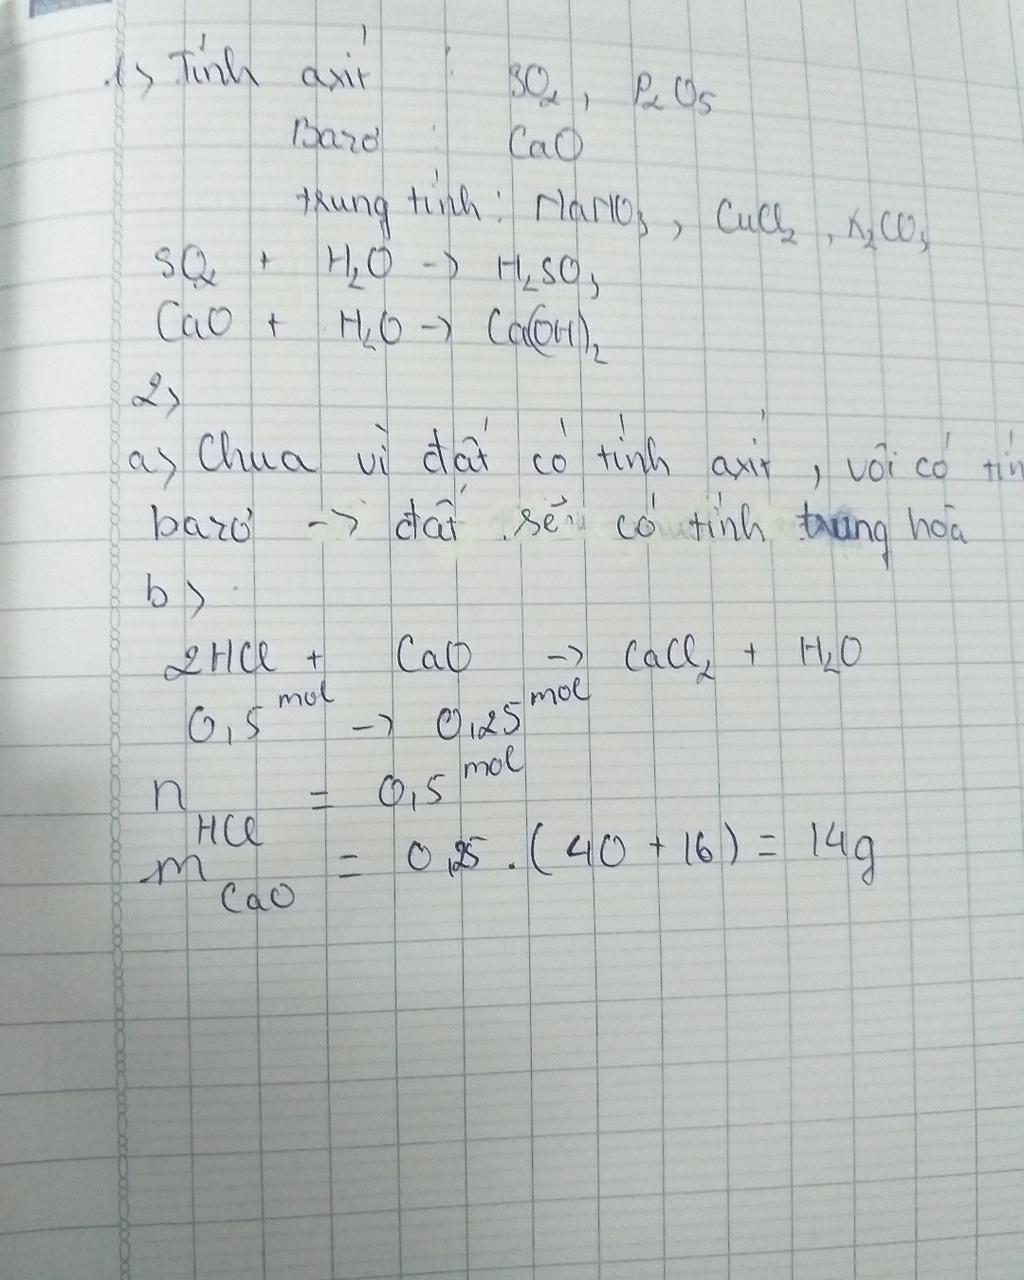 1> Tính axit : SO₂, P₂O₅
Bazơ : CaO
trung tính: NaNO₃, CuCl₂, K₂CO₃
SO₂ + H₂O -> H₂SO₃
CaO + H₂O -> Ca(OH)₂
2>
a> Chua vì đất có tính axit, vôi có tín
bazơ -> đất sẽ có tính trung hòa
b>
2HCl + CaO -> CaCl₂ + H₂O
0,5 mol -> 0,25 mol
n HCl = 0,5 mol
m CaO = 0,25 . (40 + 16) = 14g